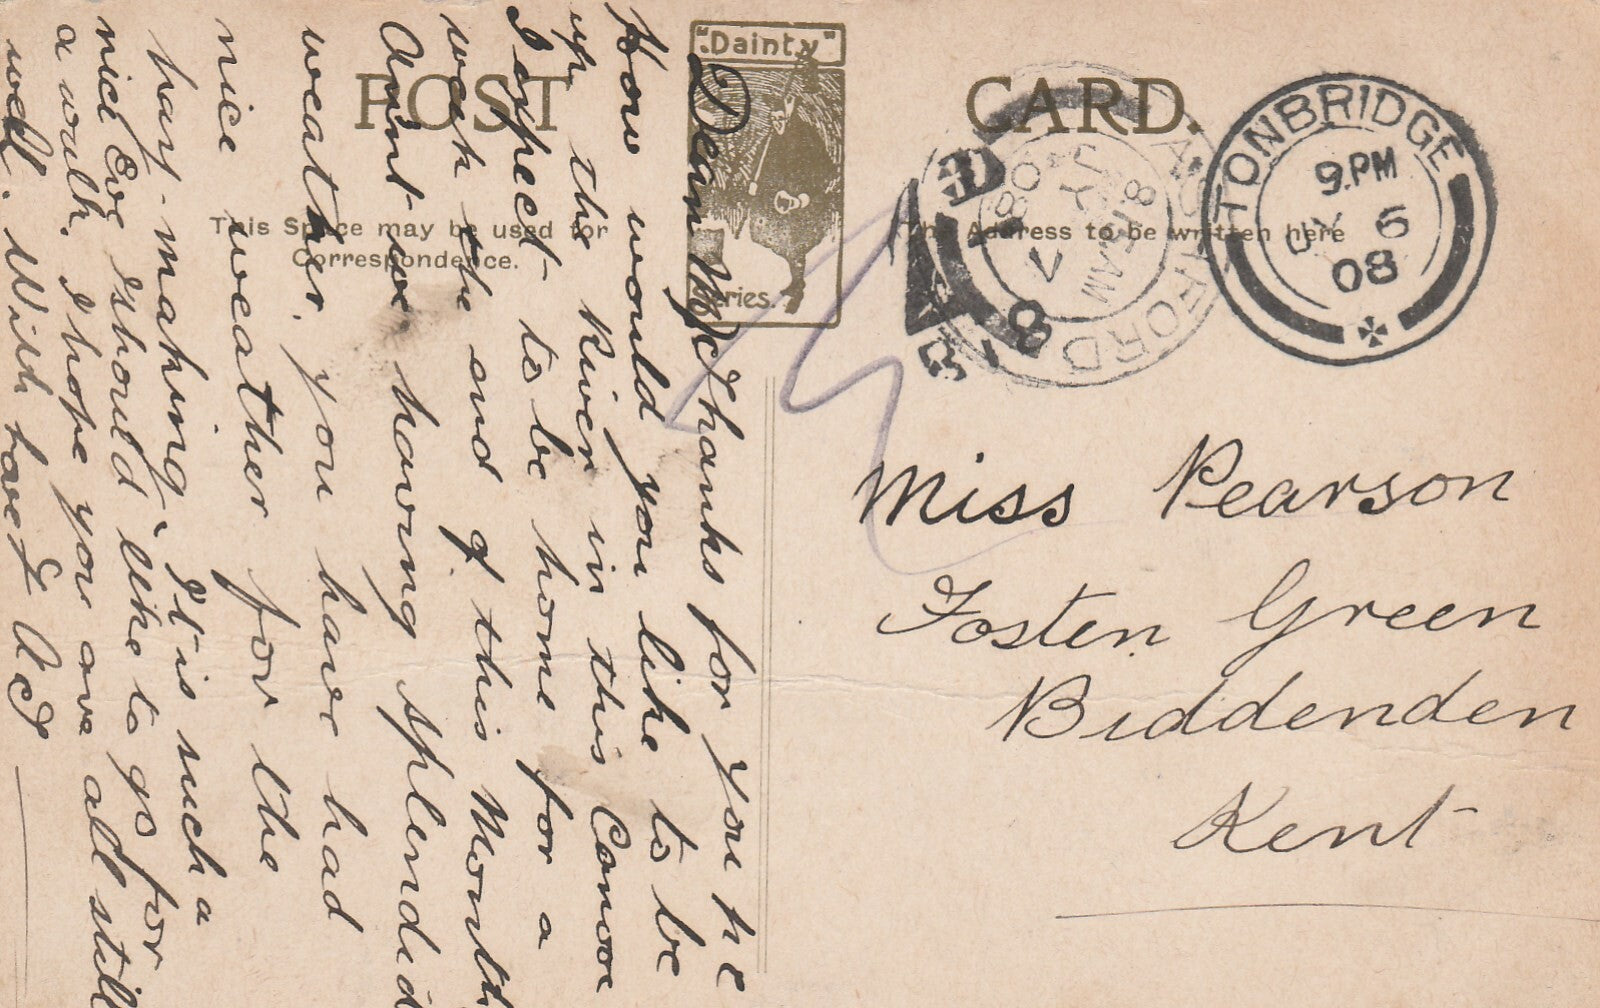 POST CARD.
"Dainty"
Series.
This Space may be used for
Correspondence.
The Address to be written here
TONBRIDGE
9.PM
JY 6
08
ASHFORD
8 15 AM
JY 7
08
Miss Pearson
Fosten Green
Biddenden
Kent
Dear M, Thanks for you
How would you like to be
up the River in this Canoe
I expect to be home for a
week the end of this Month
Aint we having splendid
weather. you have had
nice weather for the
hay-making, It is such a
nice Eve I should like to go for
a walk. I hope you are all still
well. With love